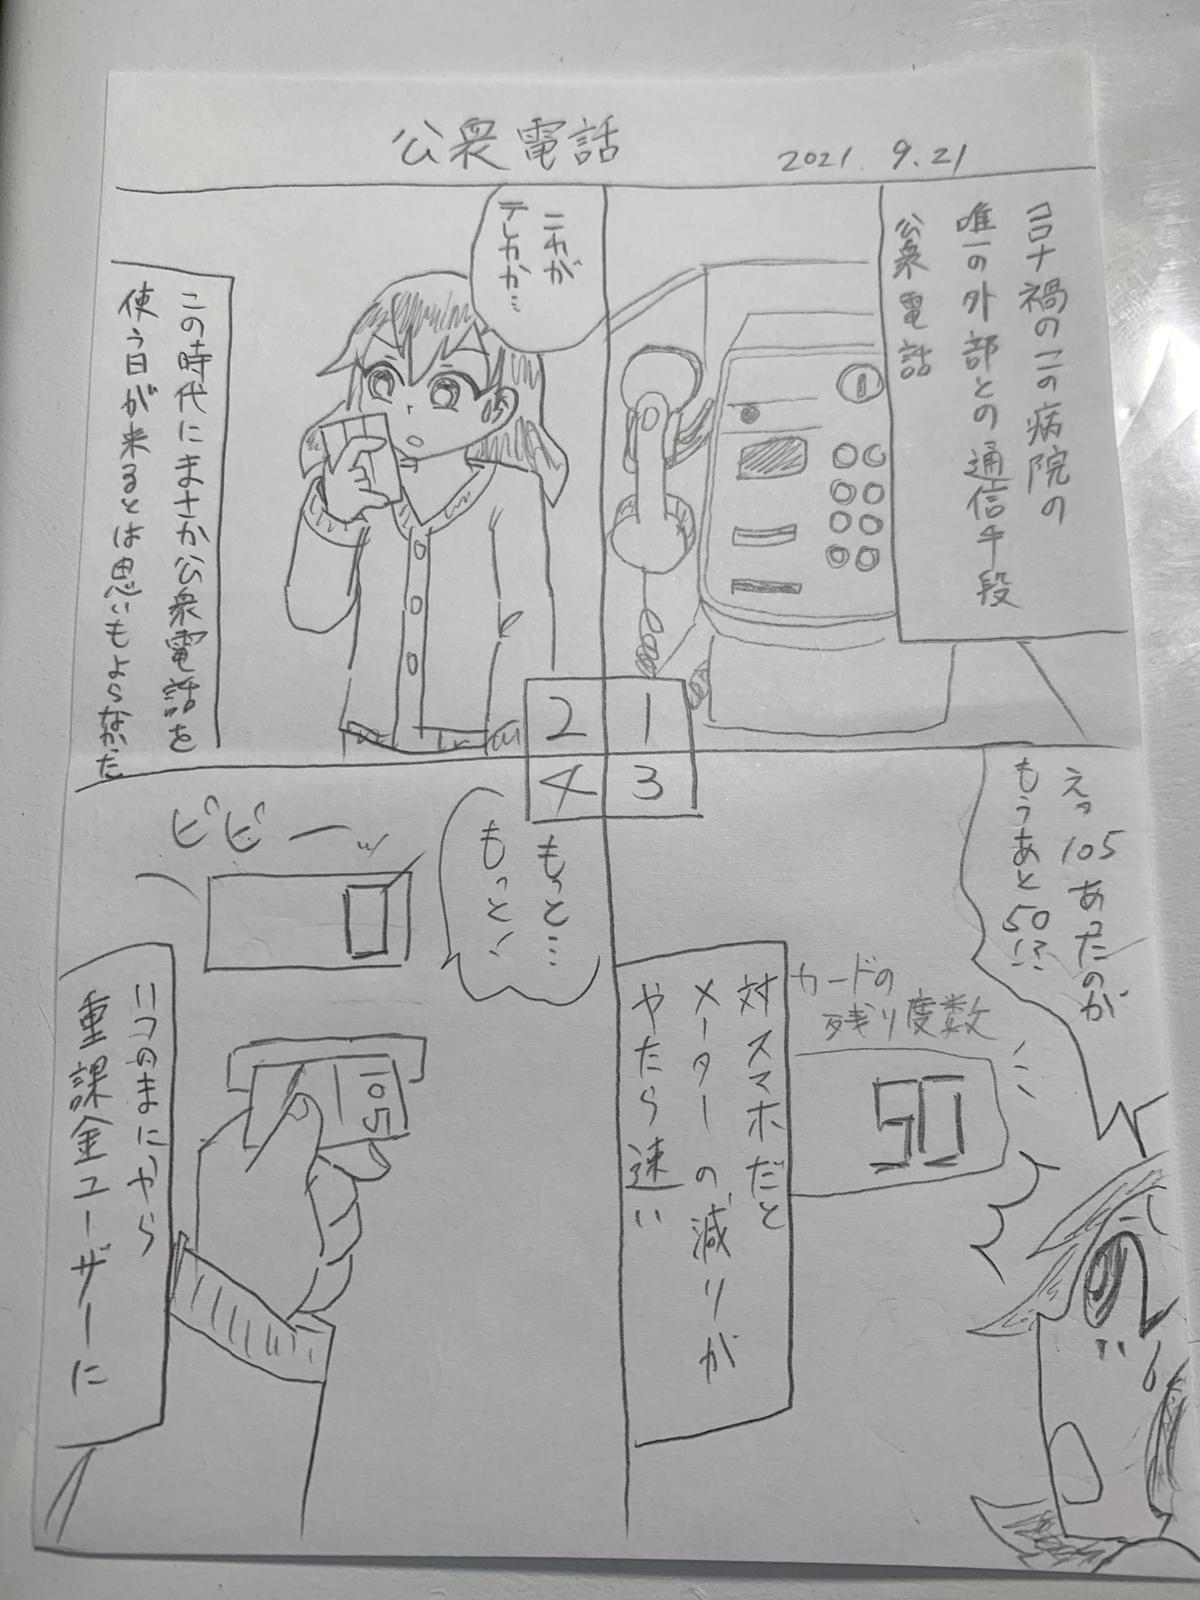 公衆電話
2021. 9. 21
コロナ禍のこの病院の
唯一の外部との通信手段
公衆電話
1
これが
テレカか…
この時代にまさか公衆電話を
使う日が来るとは思いもよらなかった
2
えっ105あったのが
もうあと50!?
カードの
残り度数
50
対スマホだと
メーターの減りが
やたら速い
3
もっと…
もっと!
ピピーッ
0
105
いつのまにやら
重課金ユーザーに
4